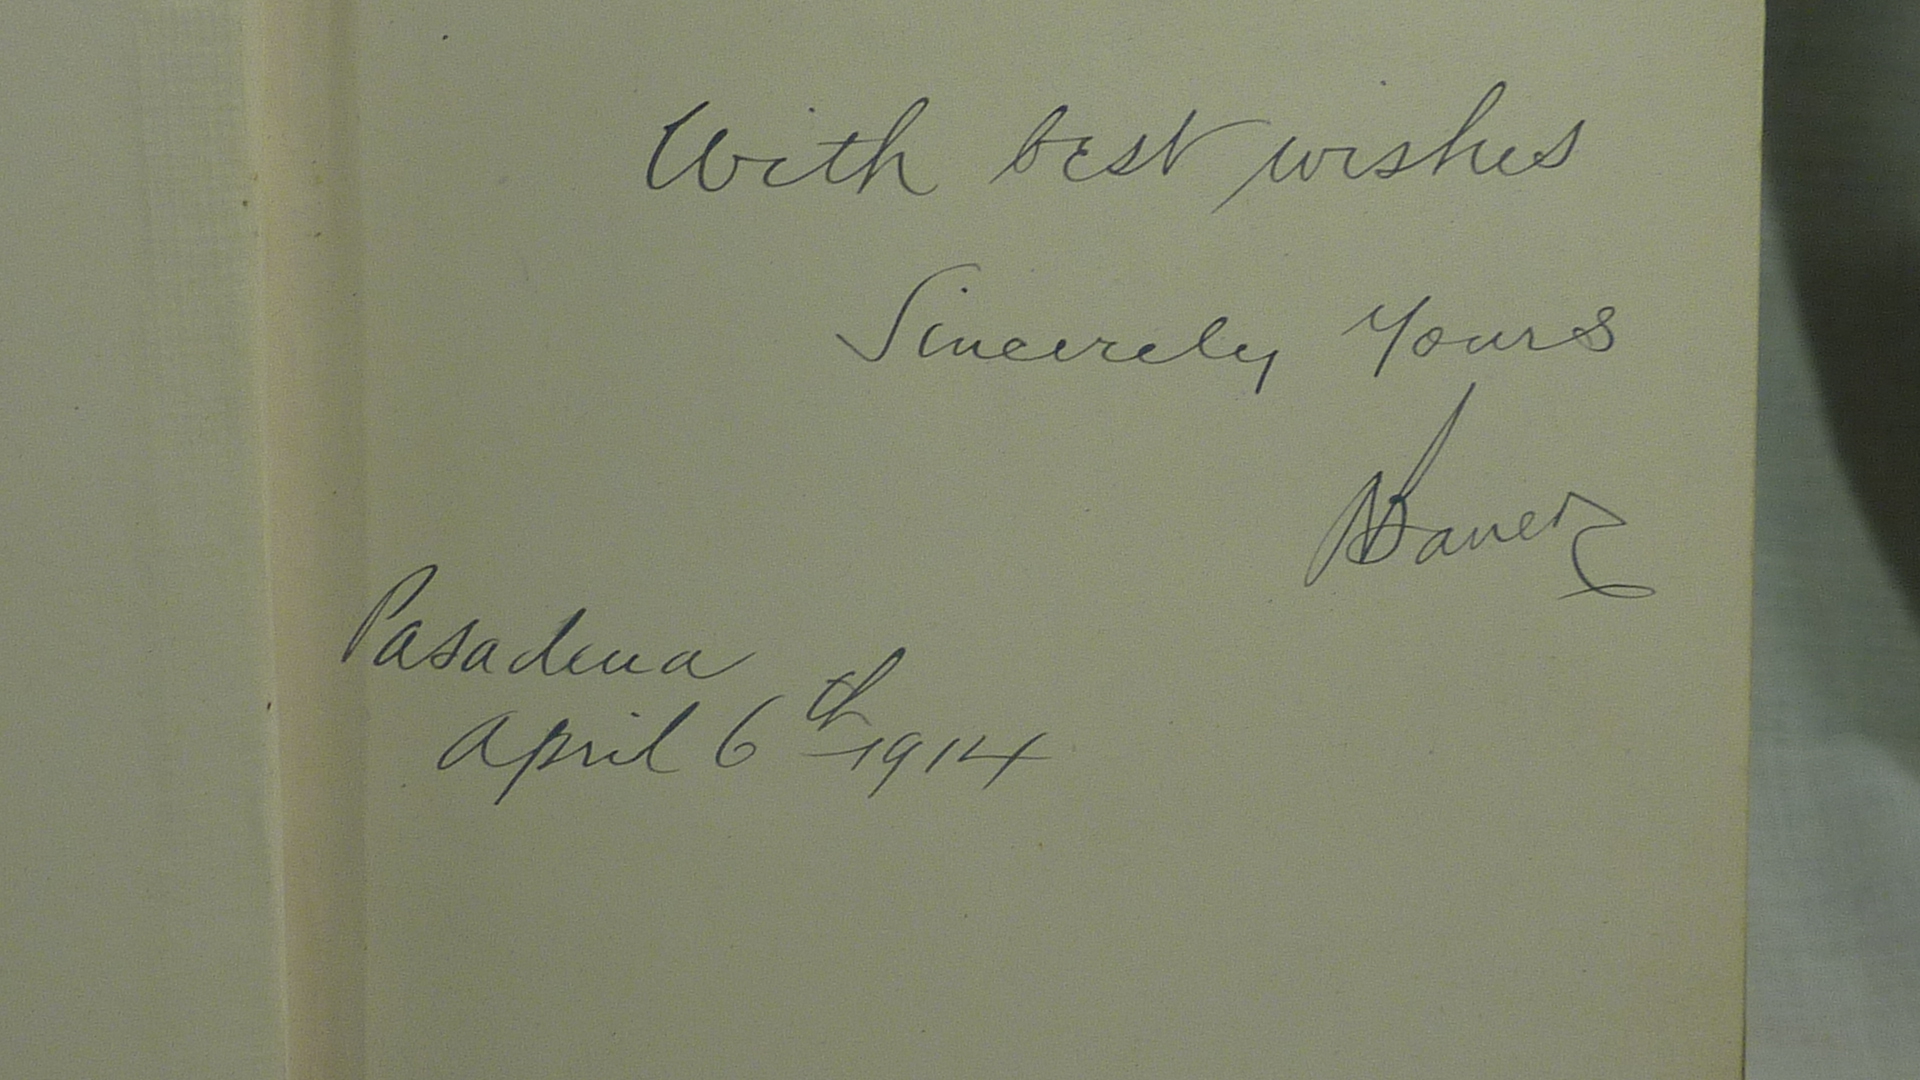 With best wishes
Sincerely Yours
Pasadena
April 6th 1914